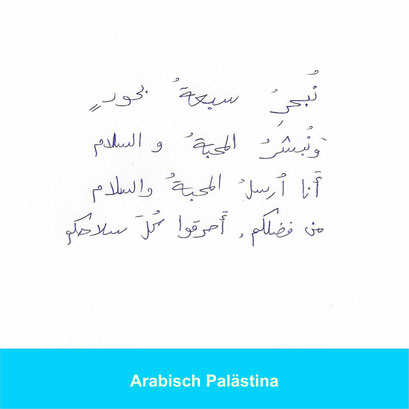 نُبحرُ سبعةُ بحورٍ
وَنُبشرُ المحبةُ و السلام
أَنا اُرسلُ المحبةُ والسلام
من فضلكم، أَحرقوا كُلَ سلاحكم
Arabisch Palästina